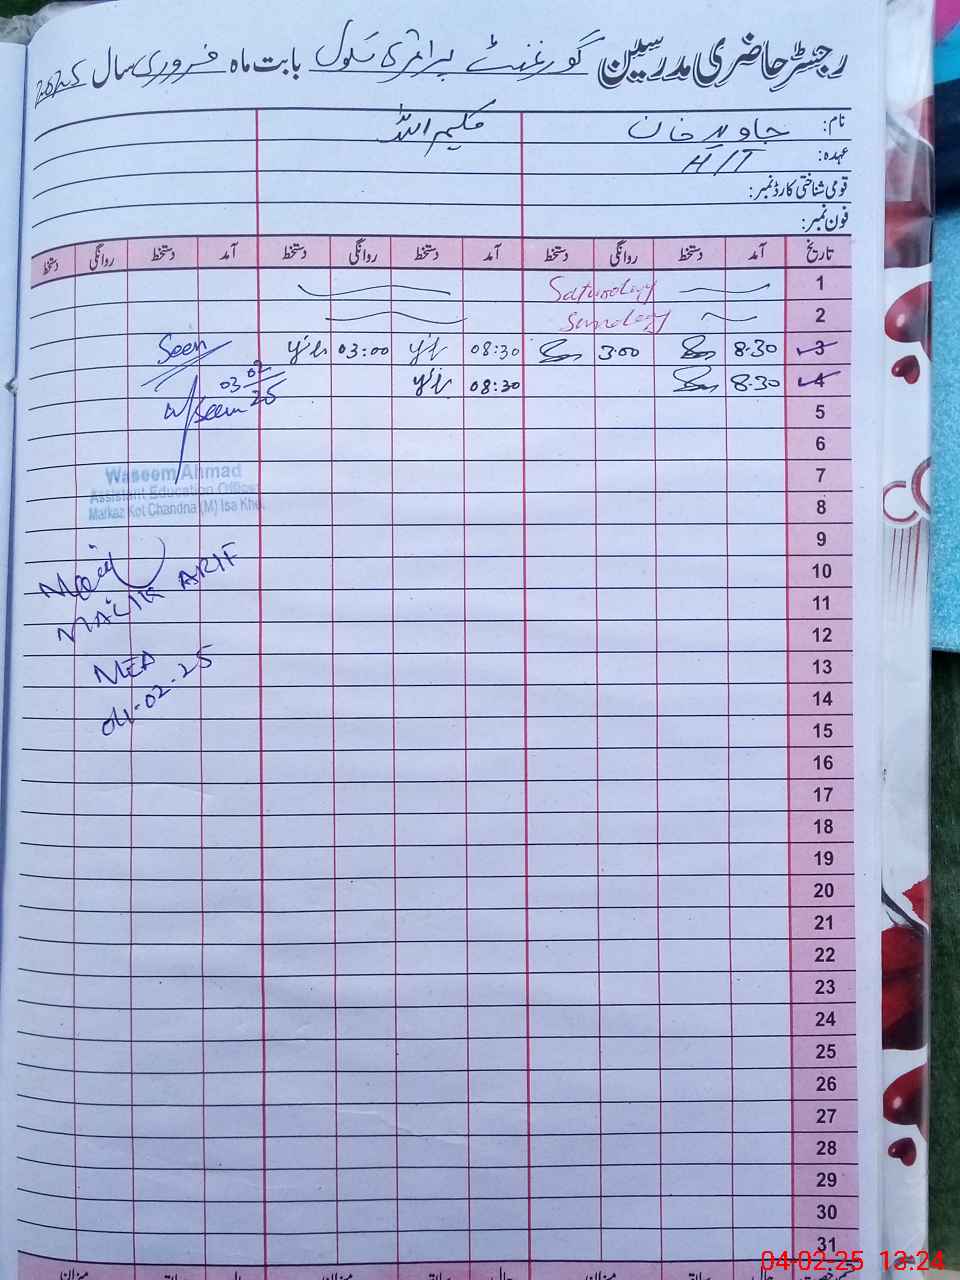 رجسٹر حاضری مدرسین گورنمنٹ پرائمری سکول بابت ماہ فروری سال 2025
نام: جاوید خان حکیم اللہ
عہدہ: H/T
قومی شناختی کارڈ نمبر:
فون نمبر:
تاریخ آمد دستخط روانگی دستخط آمد دستخط روانگی دستخط آمد دستخط روانگی دستخط
1 Saturday
2 Sunday
3 8.30 3.00 08:30 03:00 Seen
4 8.30 08:30 03 02 25
5 W/Seem
6
7 Waseem Ahmad
Assistant Education Officer
8 Markaz Kot Chandna (M) Isa Khel
9
10
11 MALIK ARIF
12
13 MEA
14 04-02-25
15
16
17
18
19
20
21
22
23
24
25
26
27
28
29
30
31
میزان سابقہ حال میزان سابقہ حال میزان سابقہ
04-02-25 13:24